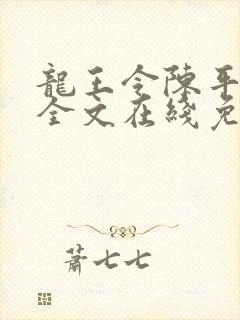 龍王令陳平
全文在綫免
蕭七七